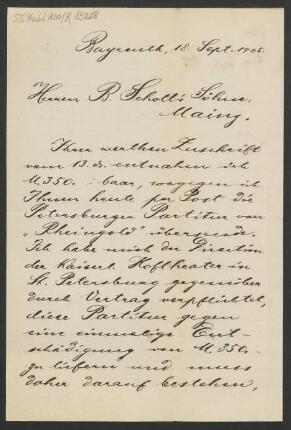 Bayreuth, 18. Sept. 1905.
Herren B. Schott's Söhne,
Mainz.
Ihrer werthen Zuschrift
vom 13. ds. entnahm ich
M. 350.- baar, wogegen ich
Ihnen heute per Post die
Petersburger Partitur von
"Rheingold" übersende.
Ich habe mich der Direction
der Kaiserl. Hoftheater in
St. Petersburg gegenüber
durch Vertrag verpflichtet,
diese Partitur gegen
eine einmalige Ent-
schädigung von M. 350.-
zu liefern und muss
daher darauf bestehen,